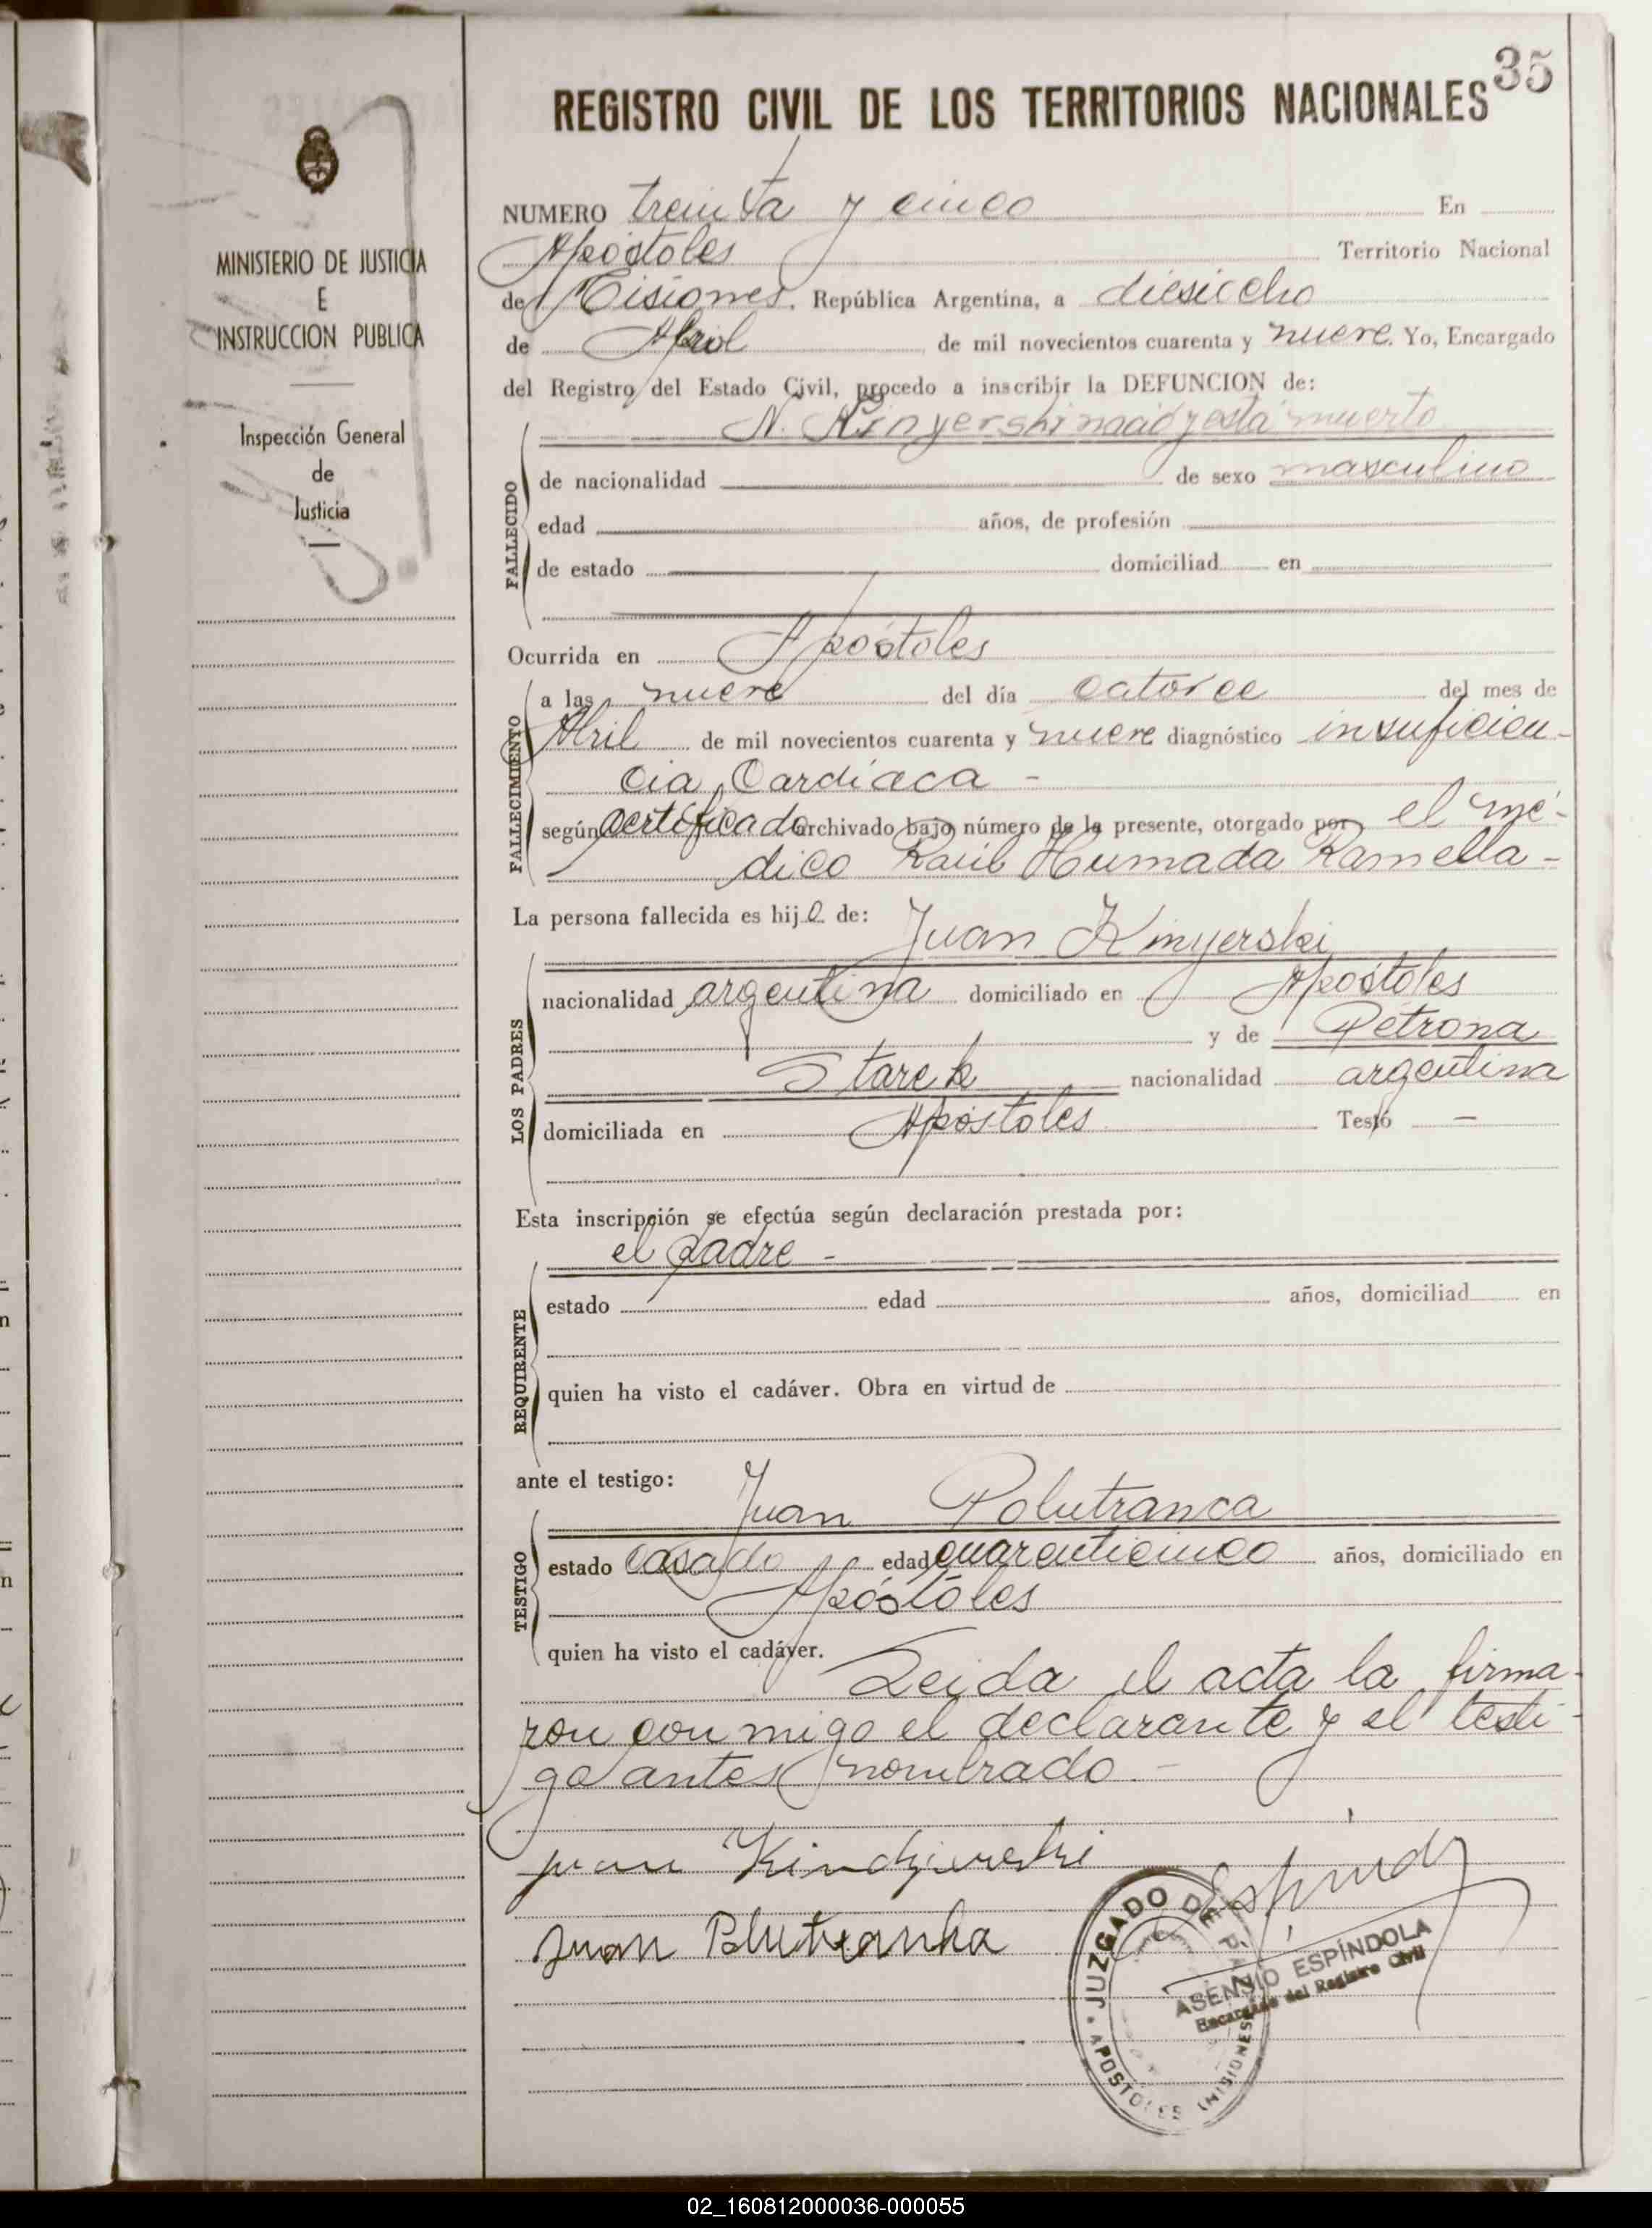 35
REGISTRO CIVIL DE LOS TERRITORIOS NACIONALES
MINISTERIO DE JUSTICIA
E
INSTRUCCION PUBLICA
Inspección General
de
Justicia
NUMERO treinta y cinco En
Apóstoles Territorio Nacional
de Misiones. República Argentina, a diesiocho
de Abril de mil novecientos cuarenta y nueve. Yo, Encargado
del Registro del Estado Civil, procedo a inscribir la DEFUNCION de:
N. Kinyerski nació y está muerto
FALLECIDO
de nacionalidad de sexo masculino
edad años, de profesión
de estado domiciliad en
Ocurrida en Apóstoles
FALLECIMIENTO
a las nueve del día catorce del mes de
Abril de mil novecientos cuarenta y nueve diagnóstico insuficien-
cia Cardíaca -
según certificado archivado bajo número de la presente, otorgado por el mé-
dico Raúl Humada Ramella -
La persona fallecida es hijo de:
Juan Kinyerski
LOS PADRES
nacionalidad argentina domiciliado en Apóstoles
y de Petrona
Starek nacionalidad argentina
domiciliada en Apóstoles Testó -
Esta inscripción se efectúa según declaración prestada por:
el padre -
REQUIRENTE
estado edad años, domiciliad en
quien ha visto el cadáver. Obra en virtud de
ante el testigo:
Juan Polutranca
TESTIGO
estado casado edad cuarenticinco años, domiciliado en
Apóstoles
quien ha visto el cadáver.
Leida el acta la firma-
ron conmigo el declarante y el testi-
go antes nombrado -
juan Kindzierski
Juan Blutranka
JUZGADO DE PAZ
APOSTOLES (MISIONES)
ASENSIO ESPÍNDOLA
Encargado del Registro Civil
02_160812000036-000055